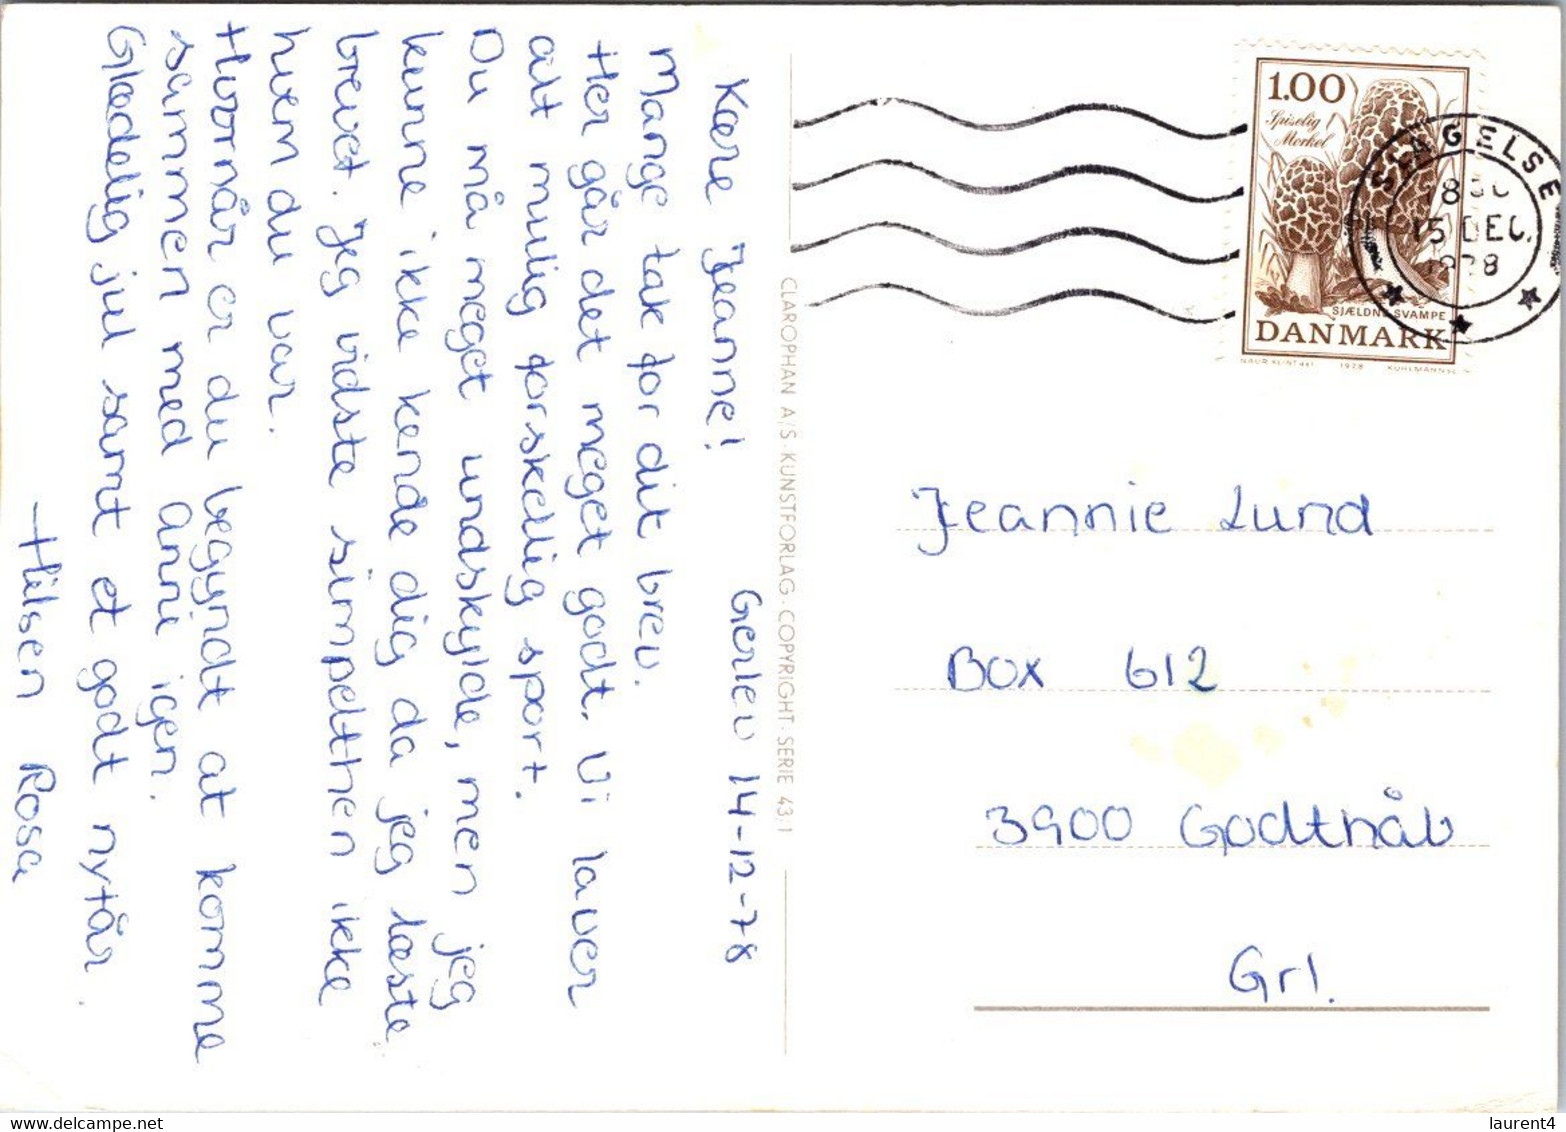 Kære Jeanne!
Gerlev 14-12-78
Mange tak for dit brev.
Her går det meget godt. Vi laver
alt mulig forskellig sport.
Du må meget undskylde, men jeg
kunne ikke kende dig da jeg læste
brevet. Jeg vidste simpelthen ikke
hvem du var.
Hvornår er du begyndt at komme
sammen med Anni igen.
Glædelig jul samt et godt nytår.
Hilsen Rosa
CLAROPHAN A/S · KUNSTFORLAG · COPYRIGHT · SERIE 43:1
1.00
Spiselig
Morkel
SJÆLDNE SVAMPE
DANMARK
1978
SLAGELSE
15 DEC.
1978
Jeannie Lund
Box 612
3900 Godthåb
Grl.
laurent4